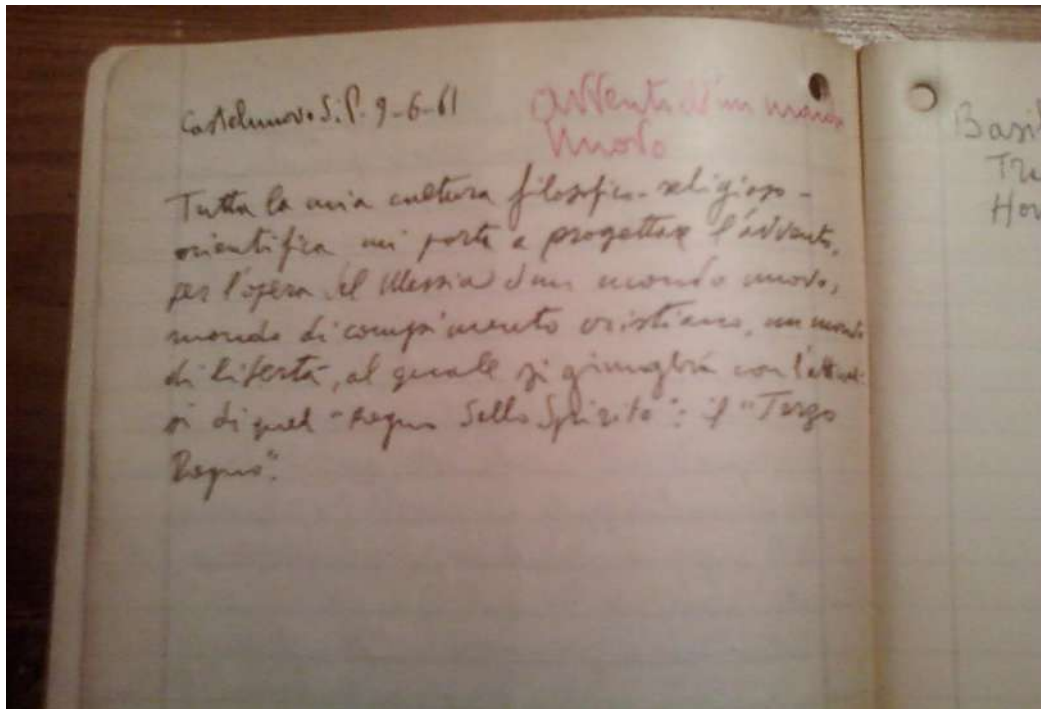 Castelnuovo d. P. 9-6-61
avvento d'un mondo
nuovo
Tutta la mia cultura filosofico-religioso-
scientifica mi porta a progettare l'avvento,
per l'opera del Messia d'un mondo nuovo,
mondo di compimento cristiano, un mondo
di libertà, al quale si giungerà con l'attuar-
si di quel "Regno dello Spirito": il "Terzo
Regno".
Basil
Tru
Hor